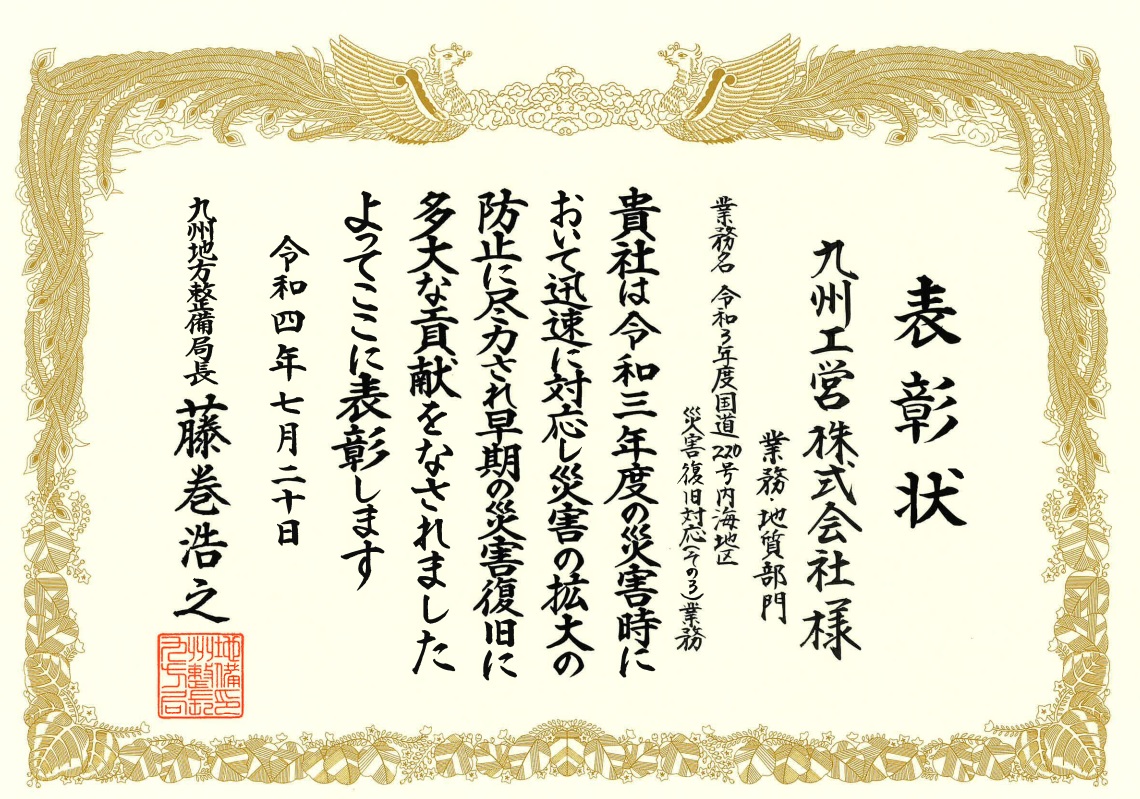 表彰状
九州工営株式会社様
業務・地質部門
業務名 令和3年度国道220号内海地区
災害復旧対応(その3)業務
貴社は令和三年度の災害時に
おいて迅速に対応し災害の拡大の
防止に尽力され早期の災害復旧に
多大な貢献をなされました
よってここに表彰します
令和四年七月二十日
九州地方整備局長 藤巻浩之